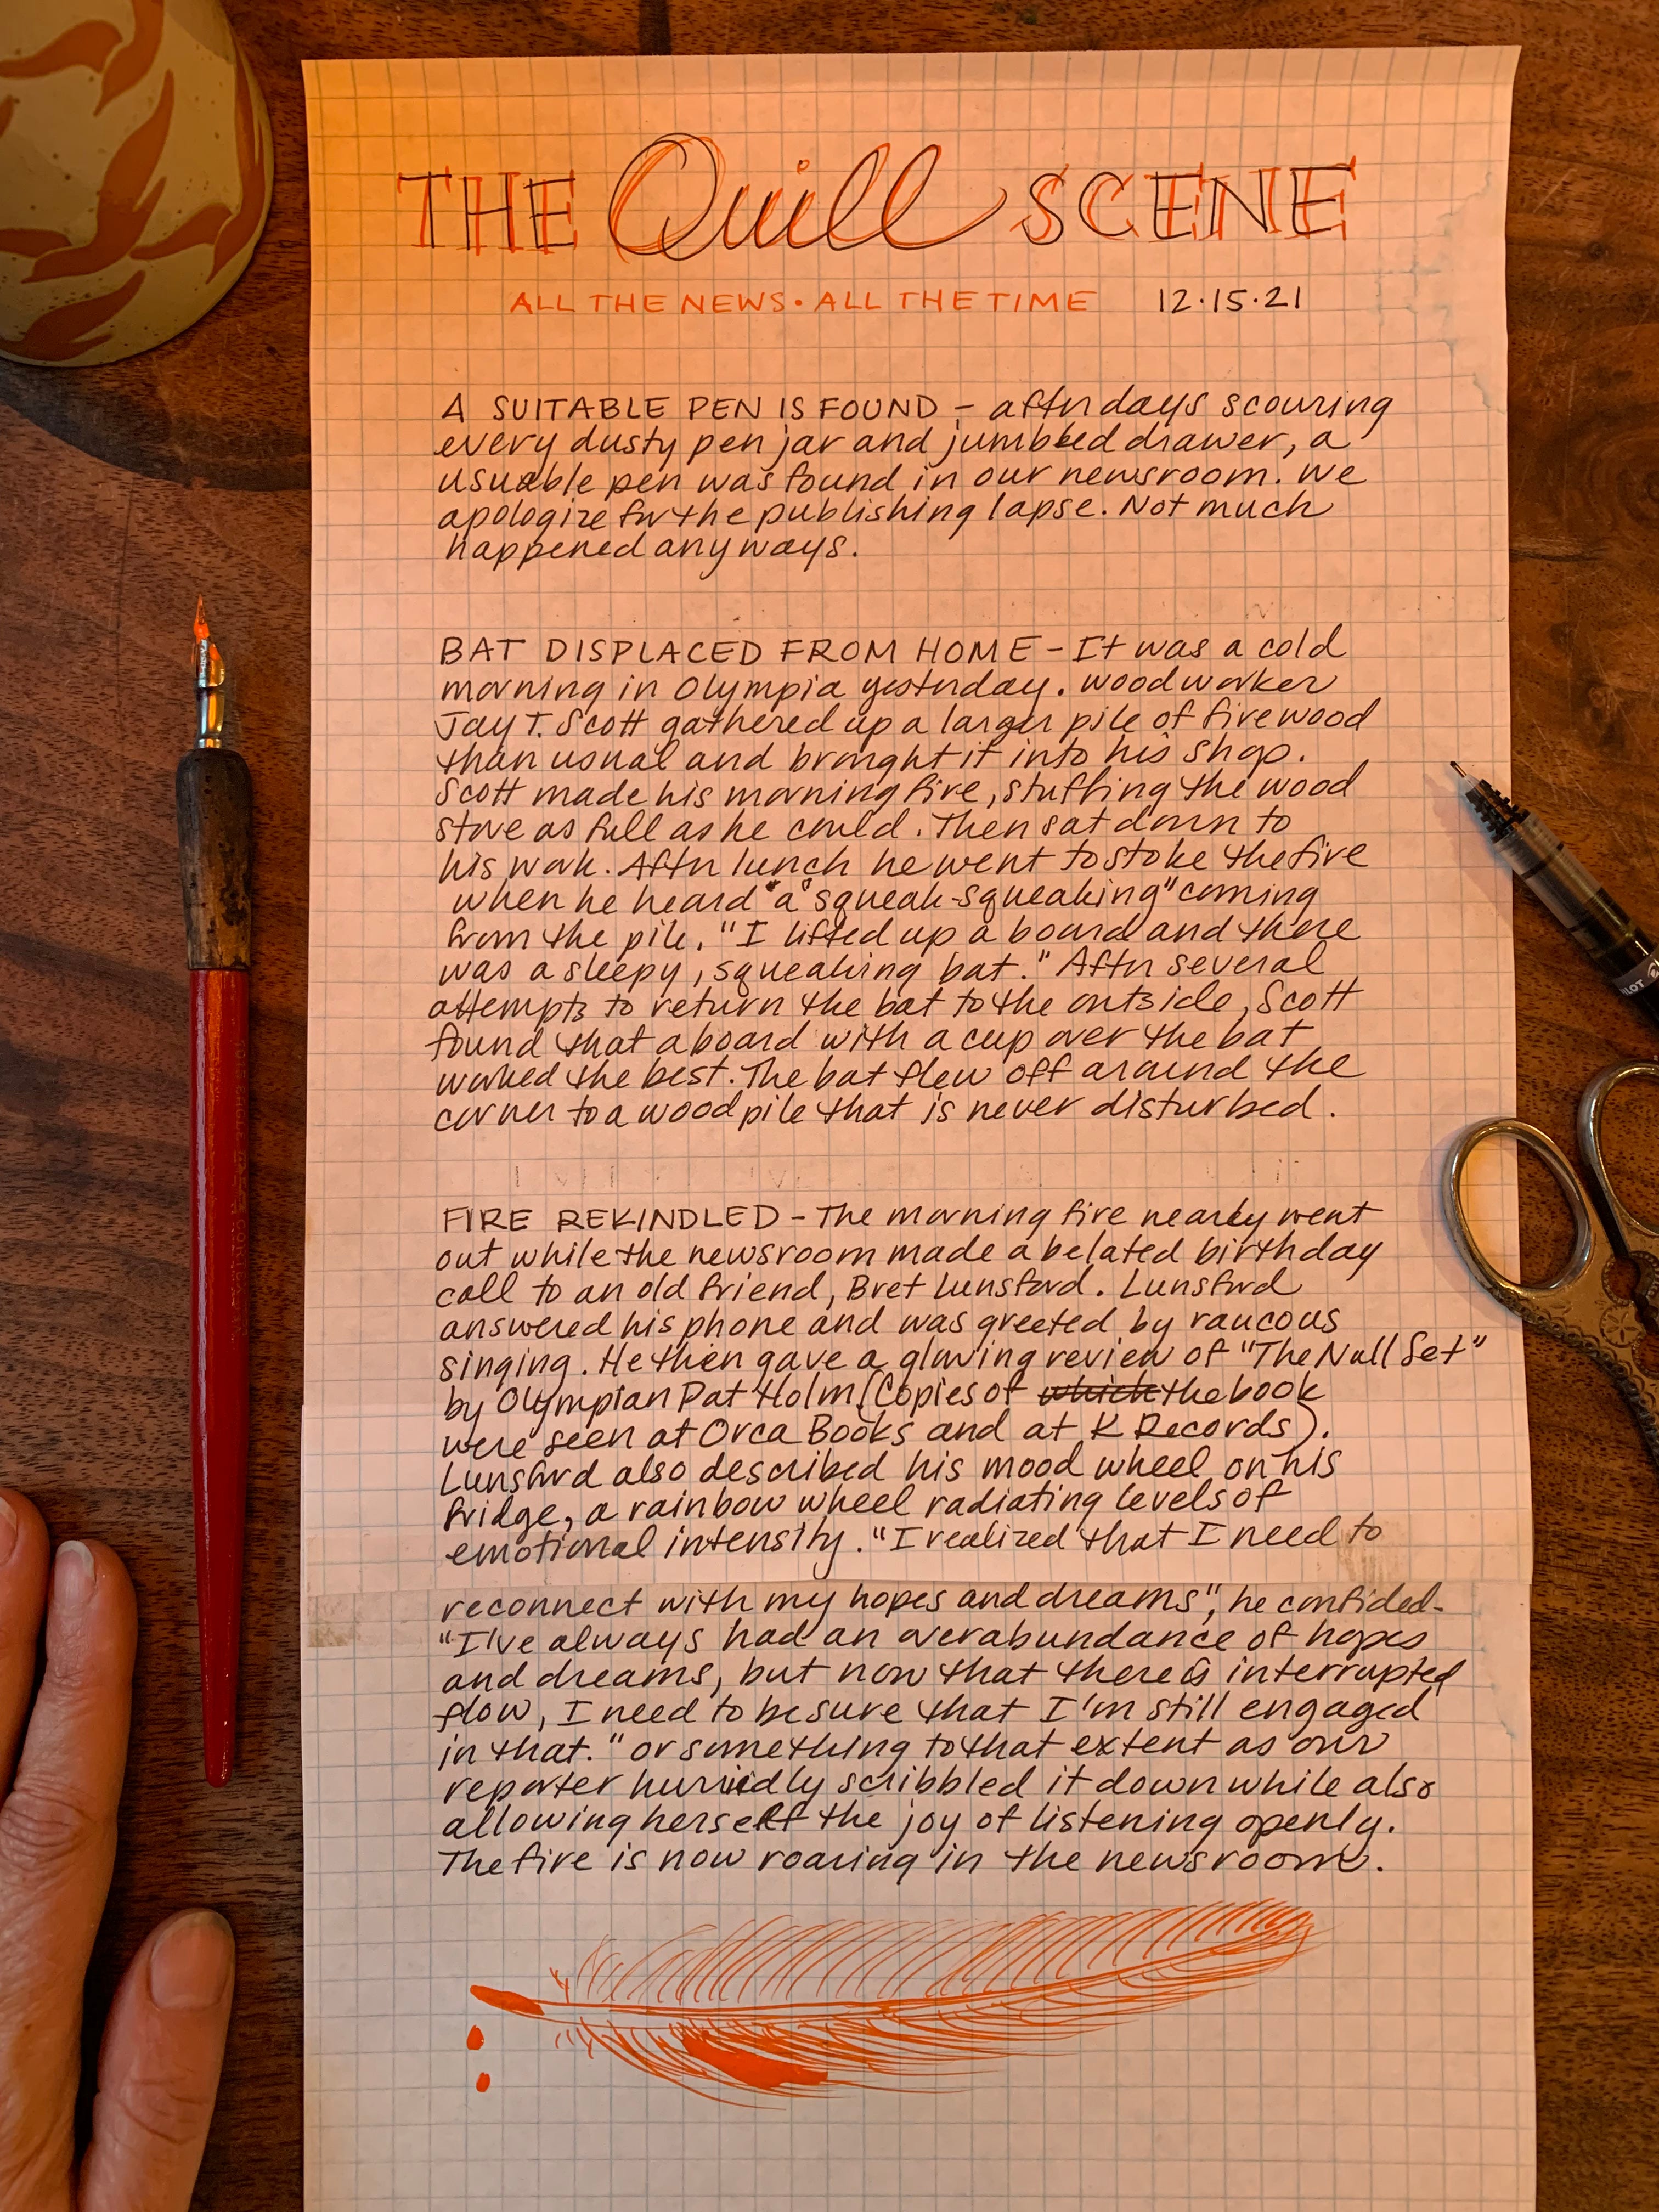 THE Quill SCENE
ALL THE NEWS • ALL THE TIME 12.15.21
A SUITABLE PEN IS FOUND - after days scouring
every dusty pen jar and jumbled drawer, a
usuable pen was found in our newsroom. We
apologize for the publishing lapse. Not much
happened anyways.
BAT DISPLACED FROM HOME - It was a cold
morning in Olympia yesterday. Woodworker
Jay T. Scott gathered up a larger pile of firewood
than usual and brought it into his shop.
Scott made his morning fire, stuffing the wood
stove as full as he could. Then sat down to
his work. After lunch he went to stoke the fire
when he heard "a "squeak-squeaking" coming
from the pile. "I lifted up a board and there
was a sleepy, squeaking bat." After several
attempts to return the bat to the outside, Scott
found that a board with a cup over the bat
worked the best. The bat flew off around the
corner to a woodpile that is never disturbed.
FIRE REKINDLED - The morning fire nearly went
out while the newsroom made a belated birthday
call to an old friend, Bret Lunsford. Lunsford
answered his phone and was greeted by raucous
singing. He then gave a glowing review of "The Null Set"
by Olympian Pat Holm (Copies of which the book
were seen at Orca Books and at K Records).
Lunsford also described his mood wheel on his
fridge, a rainbow wheel radiating levels of
emotional intensity. "I realized that I need to
reconnect with my hopes and dreams", he confided.
"I've always had an overabundance of hopes
and dreams, but now that there is interrupted
flow, I need to be sure that I'm still engaged
in that." or something to that extent as our
reporter hurriedly scribbled it down while also
allowing herself the joy of listening openly.
The fire is now roaring in the newsroom.